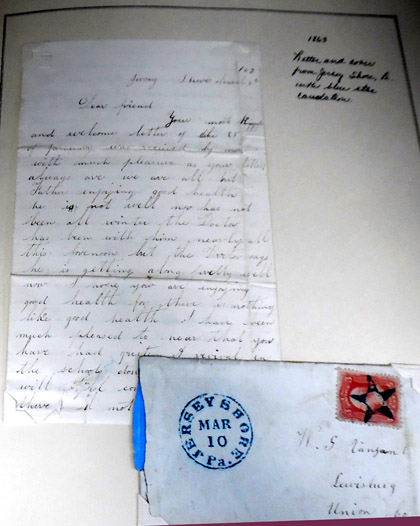 1863
Letter and cover
from Jersey Shore, Pa
with blue star
cancellation.
Jersey Shore March
Dear friend
Your most
and welcome letter of the 25
of January was received by me
with much pleasure as your letters
always are we are all but
Father enjoying good health
he is not well now has not
been all winter the Doctor
has been with him nearly all
this forenoon but the Doctor says
he is getting along pretty well
now I hope you are enjoying
good health for there is nothing
like good health I have been
much pleased to hear that you
have had great revival in
the school
will
there
JERSEY SHORE
MAR
10
Pa.
W. G.
Lewisburg
Union Co